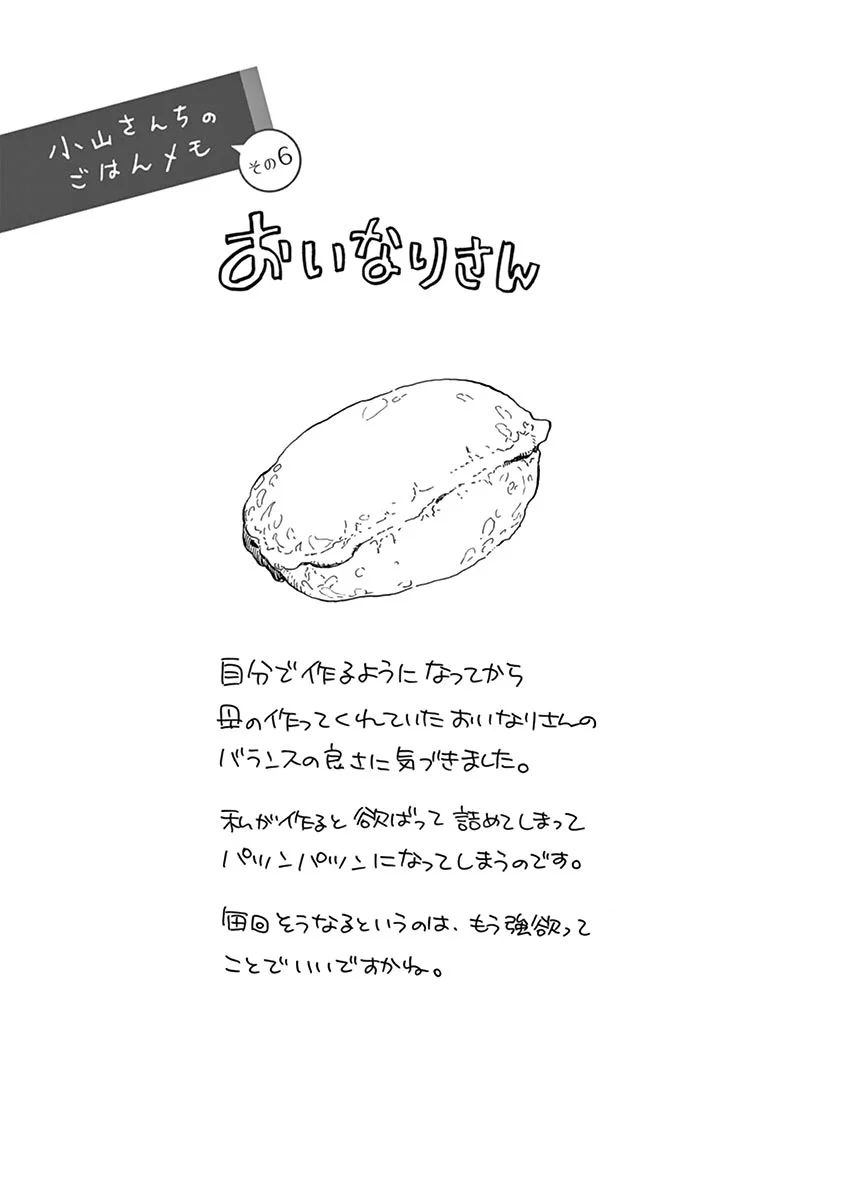 小山さんちの
ごはんメモ
その6
おいなりさん
自分で作るようになってから
母の作ってくれていたおいなりさんの
バランスの良さに気づきました。
私が作ると欲ばって詰めてしまって
パツンパツンになってしまうのです。
毎回そうなるというのは、もう強欲って
ことでいいですかね。